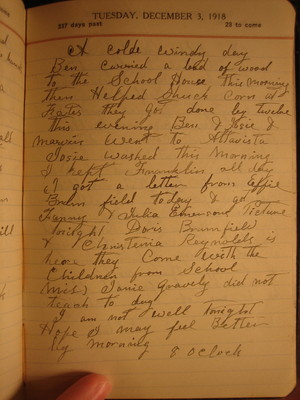 TUESDAY, DECEMBER 3, 1918
337 days past
28 to come
A colde windy day
Ben carried a load of wood
to the School House this morning
then Helped Shuck Corn at
Kates they got done by twelve
this evening Ben & Josie &
Marvin went to Altavista
Josie washed this morning
I kept Franklin all day
I got a letter from Effie
field today & got
Fanny & Julia Emerson Picture
tonight Doris Brumfield
& Christinia Reynolds is
hear they Come with the
Children from School
Miss Janie Gravely did not
teach to day
I am not well tonight
Hope I may feel Better
by morning
8 oClock